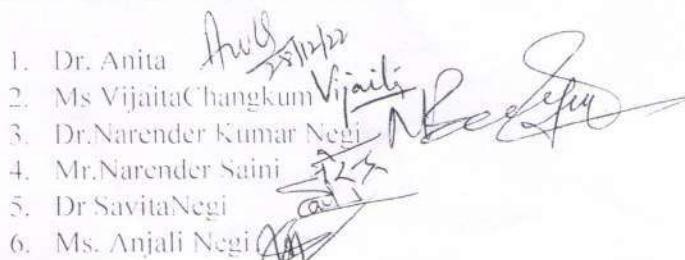 1. Dr. Anita 28/12/22
2. Ms VijaitaChangkum Vijaita
3. Dr.Narender Kumar Negi
4. Mr.Narender Saini
5. Dr SavitaNegi
6. Ms. Anjali Negi